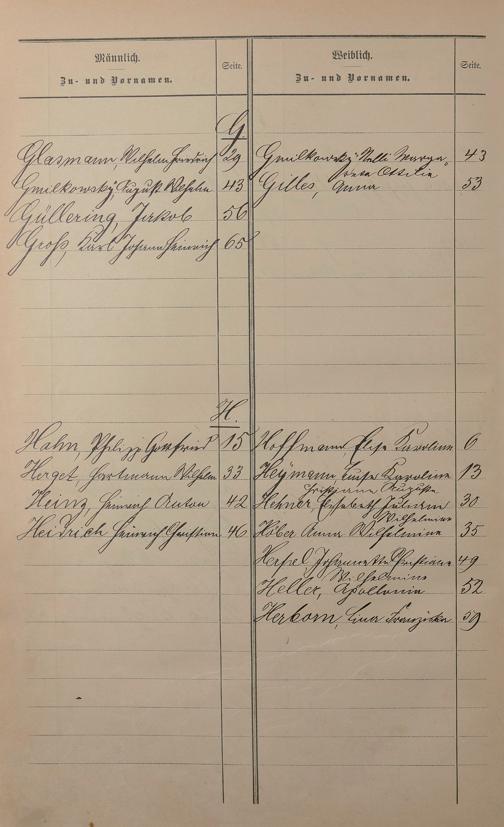 Männlich.
Zu- und Vornamen.
Seite.
Weiblich.
Zu- und Vornamen.
Seite.
G
Glasmann, Wilhelm Friedrich 29
Gmilkowsky, August Wilhelm 43
Güllering, Jakob 56
Groß, Karl Johann Heinrich 65
Gmilkowsky Nelli Marga- 43
Ottilie
Gilles, Anna 53
H.
Hahn, Philipp Gottfried 15
Hirget, Hartmann Wilhelm 33
Heinz, Heinrich Anton 42
Heidrich Heinrich Christian 46
Hoffmann, Elise Karoline 6
Heymann, Luise Karoline 13
Christiane Auguste
Elisabeth Juliane 30
Wilhelmine
Höber Anna Wilhelmine 35
Johannette Christiane 49
Wilhelmine
Heller, Apollonia 52
Herkorn, Lina Franziska 59